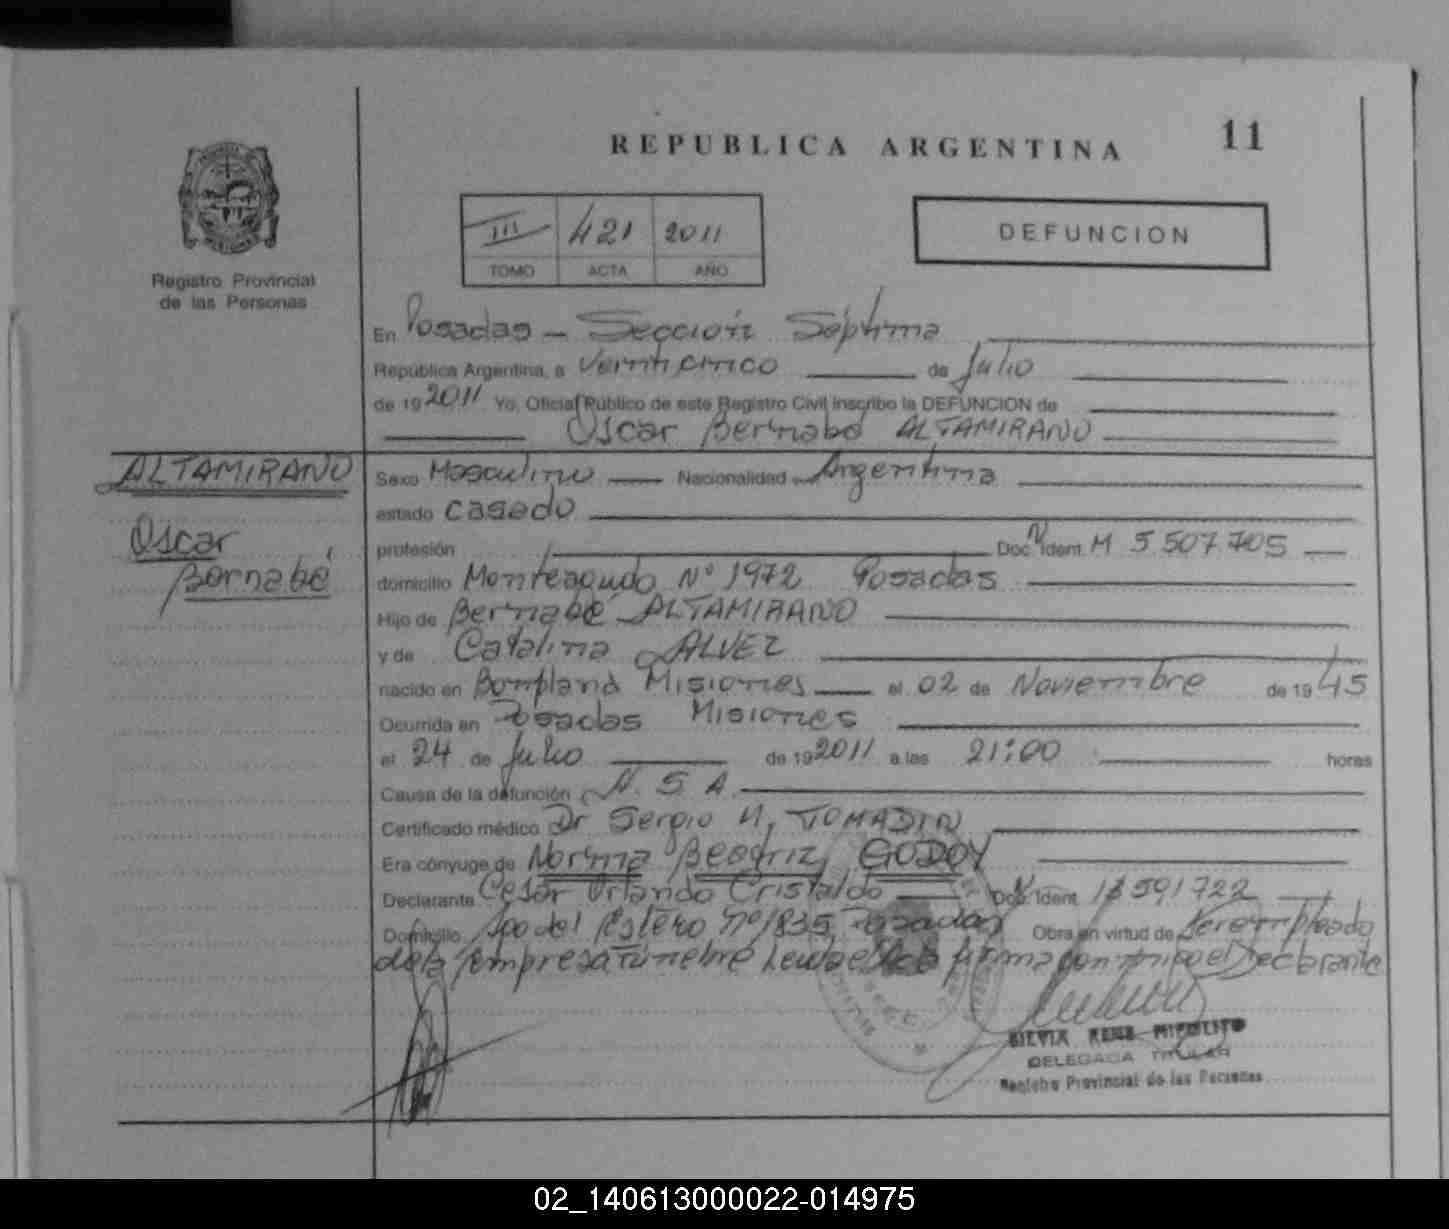 REPUBLICA ARGENTINA
11
III 421 2011
TOMO ACTA AÑO
DEFUNCION
Registro Provincial
de las Personas
En Posadas – Sección Séptima
República Argentina, a Veinticinco de Julio
de 19 2011 Yo, Oficial Público de este Registro Civil inscribo la DEFUNCION de
Oscar Bernabé ALTAMIRANO
ALTAMIRANO
Oscar
Bernabé
Sexo Masculino Nacionalidad Argentina
estado casado
profesión Doc. Ident. M 5.507.705
domicilio Monteagudo Nº 1972 Posadas
Hijo de Bernabé ALTAMIRANO
y de Catalina ALVEZ
nacido en Bompland Misiones el 02 de Noviembre de 19 45
Ocurrida en Posadas Misiones
el 24 de Julio de 19 2011 a las 21:00 horas
Causa de la defunción N. S. A.
Certificado médico Dr Sergio M. TOMADIN
Era cónyuge de Norma Beatriz GODOY
Declarante Cesar Orlando Cristaldo Doc. Ident. 13591722
Domicilio Sgo del Estero nº 1835 Posadas Obra en virtud de ser empleado
de la Empresa Funebre Leida el Acta firma conmigo el Declarante
SILVIA RENE HIPOLITO
DELEGADA TITULAR
Registro Provincial de las Personas
02_140613000022-014975